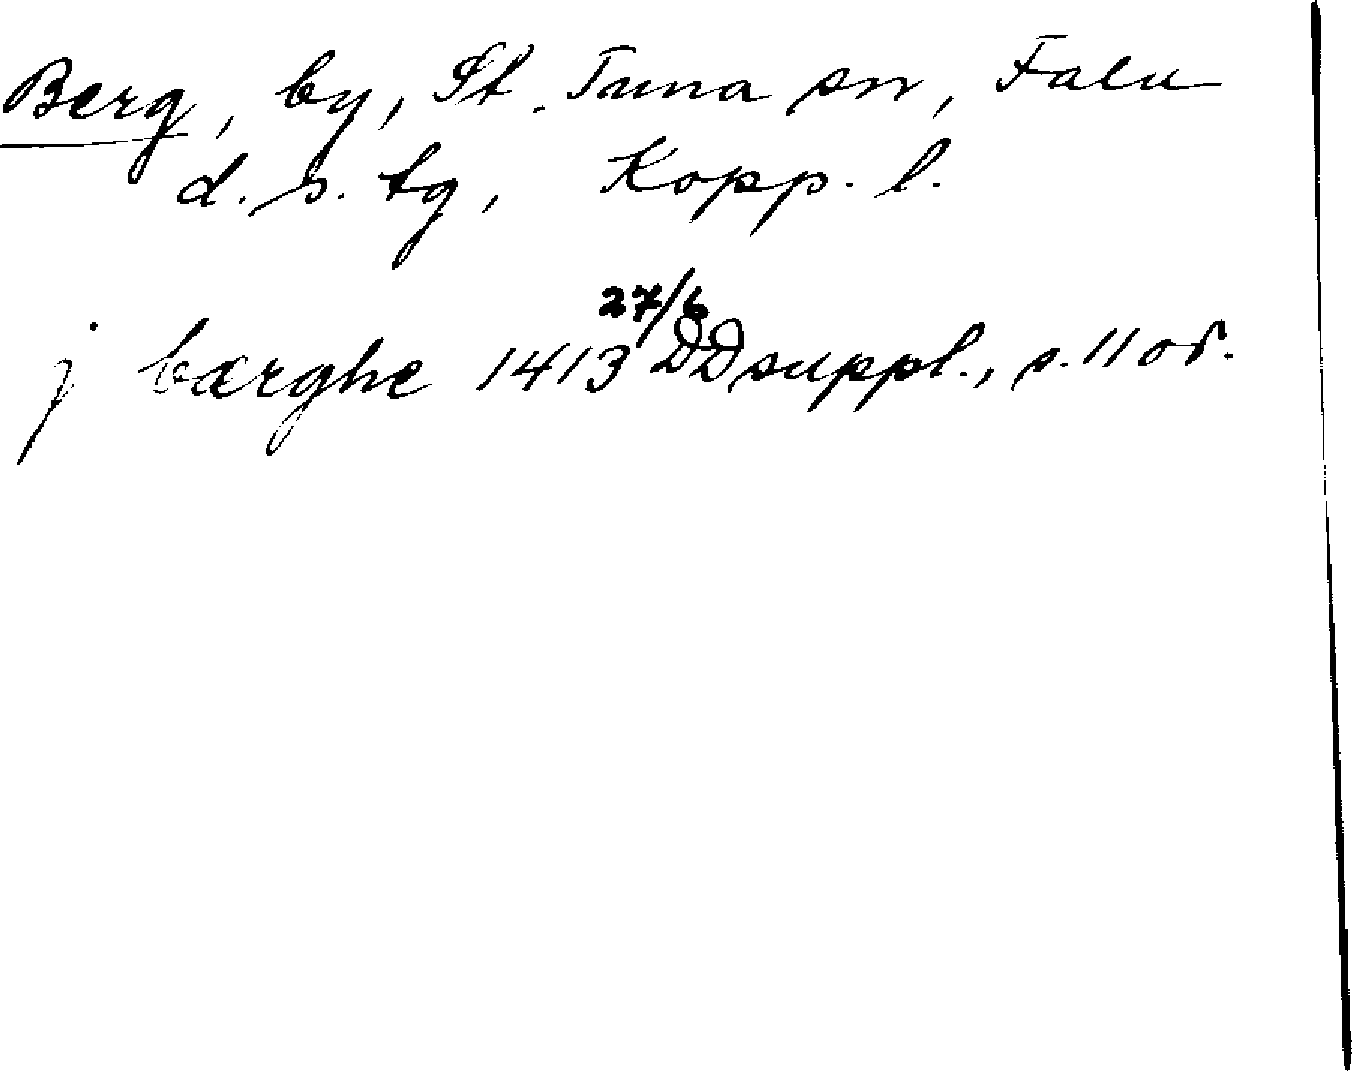 Berg, by, St. Tuna sn, Falu
d. s. tg, Kopp. l.
j bærghe 1413 27/6 DD suppl., s. 11 or.